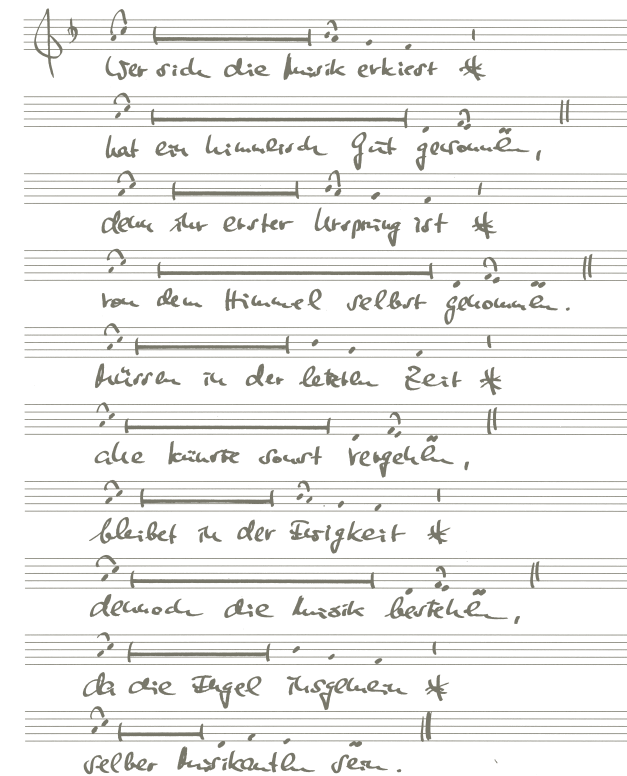 Wer sich die Musik erkiest *
hat ein himmlisch Gut gewonnen,
denn ihr erster Ursprung ist *
von dem Himmel selbst genommen.
Müssen in der letzten Zeit *
alle Künste sonst vergehen,
bleibet in der Ewigkeit *
dennoch die Musik bestehen,
da die Engel insgemein *
selber Musikanten sein.